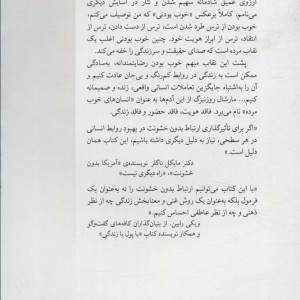 آرزوی عمیق شادمانه سهیم شدن و نثار در آسایش دیگری
می‌نامم. کاملاً برعکس «خوب بودنی» که من توصیف می‌کنم،
خوب بودن از ترس طرد شدن است، ترس از دست دادن، ترس از
انتقاد، ترس از ابراز هویت خود. چنین خوب بودنی اغلب یک
نقاب مرده است که صدای حقیقت و سرزندگی را خفه می‌کند.
پشت این نقاب مبهم خوب بودن رضایتمندانه، به‌سادگی
ممکن است به زندگی در روابط کم‌رنگ و بی‌جان عادت کنیم و
آن را به‌اشتباه جایگزین تعاملات انسانی واقعی، زنده و صمیمانه
کنیم... مارشال روزنبرگ از این آدم‌ها به عنوان «انسان‌های خوب
مرده» نام می‌برد. فاقد هویت، فاقد حضور و فاقد زندگی.
«اگر برای تأثیرگذاری ارتباط بدون خشونت در بهبود روابط انسانی
در هر سطحی، نیاز به دلیل دیگری داشته باشیم، این کتاب همان
دلیل است.»
دکتر مایکل ناگلر نویسنده‌ی «آمریکا بدون
خشونت»، «راه دیگری نیست»
«با این کتاب می‌توانیم ارتباط بدون خشونت را نه به‌عنوان یک
فرمول بلکه به‌عنوان یک روش غنی و معنابخش زندگی چه از نظر
ذهنی و چه از نظر عاطفی احساس کنیم.»
ویکی رابین. از بنیان‌گذاران کافه‌های گفت‌وگو
و همکار نویسنده کتاب «یا پول یا زندگی»